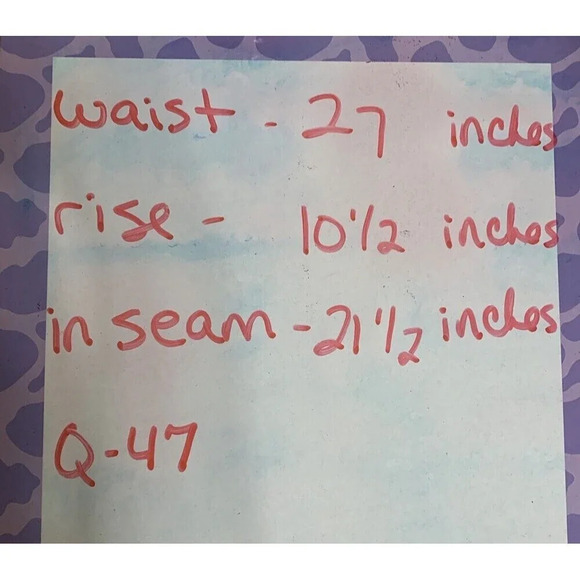 waist - 27 inches
rise - 10 1/2 inches
in seam - 21 1/2 inches
Q-47